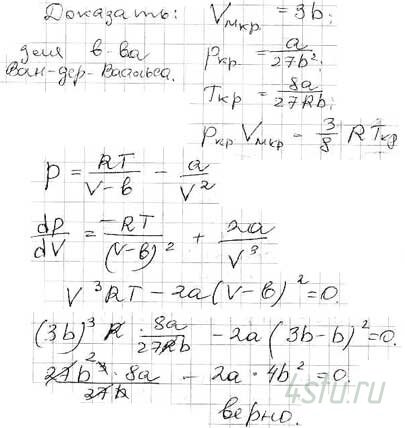 Доказать: Vмкр = 3b;
для в-ва pкр = a/27b²;
Ван-дер-Ваальса. Tкр = 8a/27Rb;
pкр Vмкр = 3/8 R Tкр
p = RT/(V-b) - a/V²
dp/dV = -RT/(V-b)² + 2a/V³
V³RT - 2a(V-b)² = 0.
(3b)³ R 8a/27Rb - 2a(3b-b)² = 0.
27b³·8a/27b - 2a·4b² = 0.
верно.
4stu.ru